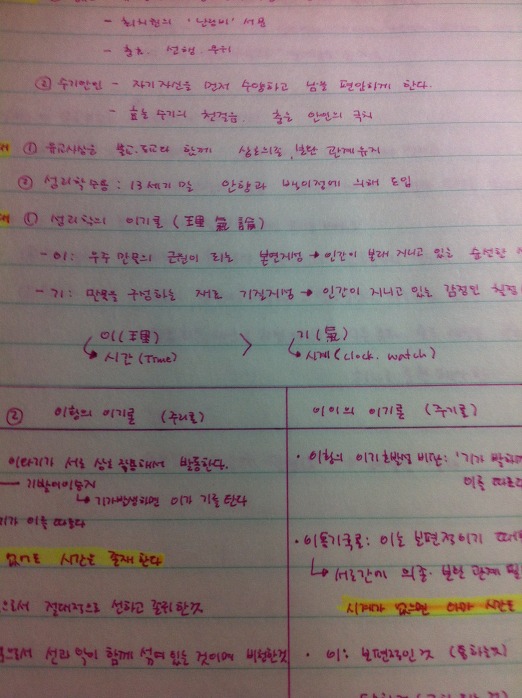 - 최치원의 '난랑비' 서문
- 충효 선행 무위
② 수기안인 - 자기자신을 먼저 수양하고 남을 편안하게 한다.
- 효는 수기의 첫걸음. 충은 안인의 극치
① 유교사상은 불교·도교와 함께 상호의존, 보완 관계유지
② 성리학수용 : 13세기 말 안향과 백이정에 의해 도입
① 성리학의 이기론 (理氣論)
- 이: 우주 만물의 근원이 되는 본연지성 → 인간이 본래 지니고 있는 순선한
- 기: 만물을 구성하는 재료 기질지성 → 인간이 지니고 있는
이(理) > 기(氣)
시간(Time) 시계(clock. watch)
② 이황의 이기론 (주리론)
이이의 이기론 (주기론)
이와기가 서로 상호 작용해서 발동한다.
· 이황의 이기호발설 비판: '기가 발하
기발이이승지
이를 따르
기가발생하면 이가 기를 탄다
기가 이를 따르다
· 이통기국론: 이는 보편적이기 때
없어도 시간은 존재한다
서로간에 의존·보완 관계 필
으로서 절대적으로 선하고 존귀한것
시계가 없으면 시간도
으로서 선과 악이 함께 섞여 있는 것이며 비천한것
· 이: 보편적인것 (통하는지)